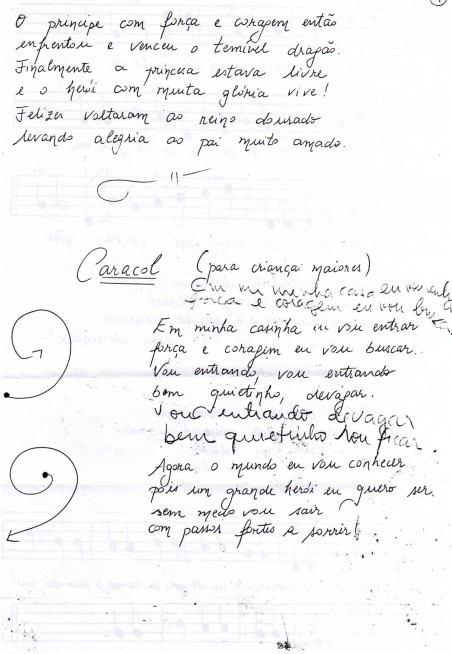 O príncipe com força e coragem então
enfrentou e venceu o temível dragão.
Finalmente a princesa estava livre
e o herói com muita glória vive!
Felizes voltaram ao reino dourado
levando alegria ao pai muito amado.
Caracol (para crianças maiores)
Em minha casa eu vou
força e coragem eu vou
Em minha casinha eu vou entrar
força e coragem eu vou buscar..
Vou entrando, vou entrando
bem quietinho, devagar.
Vou entrando devagar
bem quietinho vou ficar.
Agora o mundo eu vou conhecer
pois um grande herói eu quero ser.
sem medo vou sair
com passos fortes a sorrir!